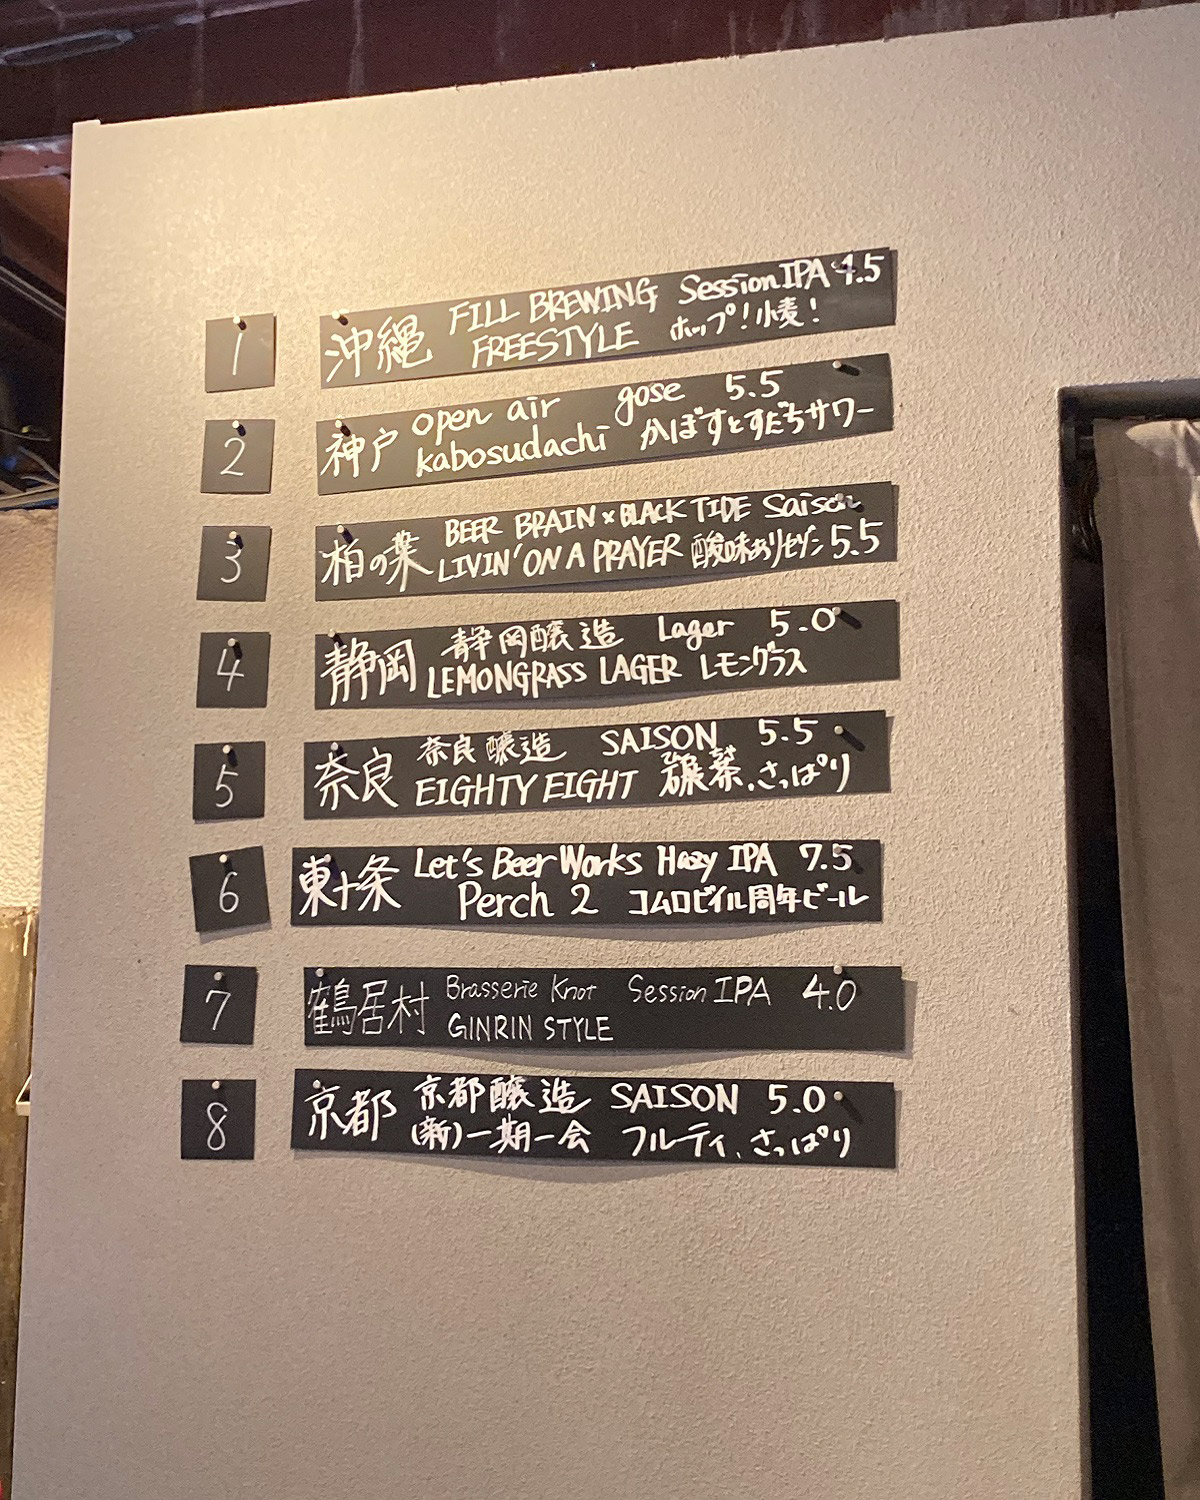 1
沖縄
FILL BREWING Session IPA 4.5
FREESTYLE ホップ!小麦!
2
神戸
open air gose 5.5
kabosudachi かぼすとすだちサワー
3
柏の葉
BEER BRAIN × BLACK TIDE Saison
LIVIN' ON A PRAYER 酸味ありセゾン 5.5
4
静岡
静岡醸造 Lager 5.0
LEMONGRASS LAGER レモングラス
5
奈良
奈良醸造 SAISON 5.5
EIGHTY EIGHT 碾茶、さっぱり
6
東十条
Let's Beer Works Hazy IPA 7.5
Perch 2 コムロビイル周年ビール
7
鶴居村
Brasserie Knot Session IPA 4.0
GINRIN STYLE
8
京都
京都醸造 SAISON 5.0
(新)一期一会 フルーティ、さっぱり